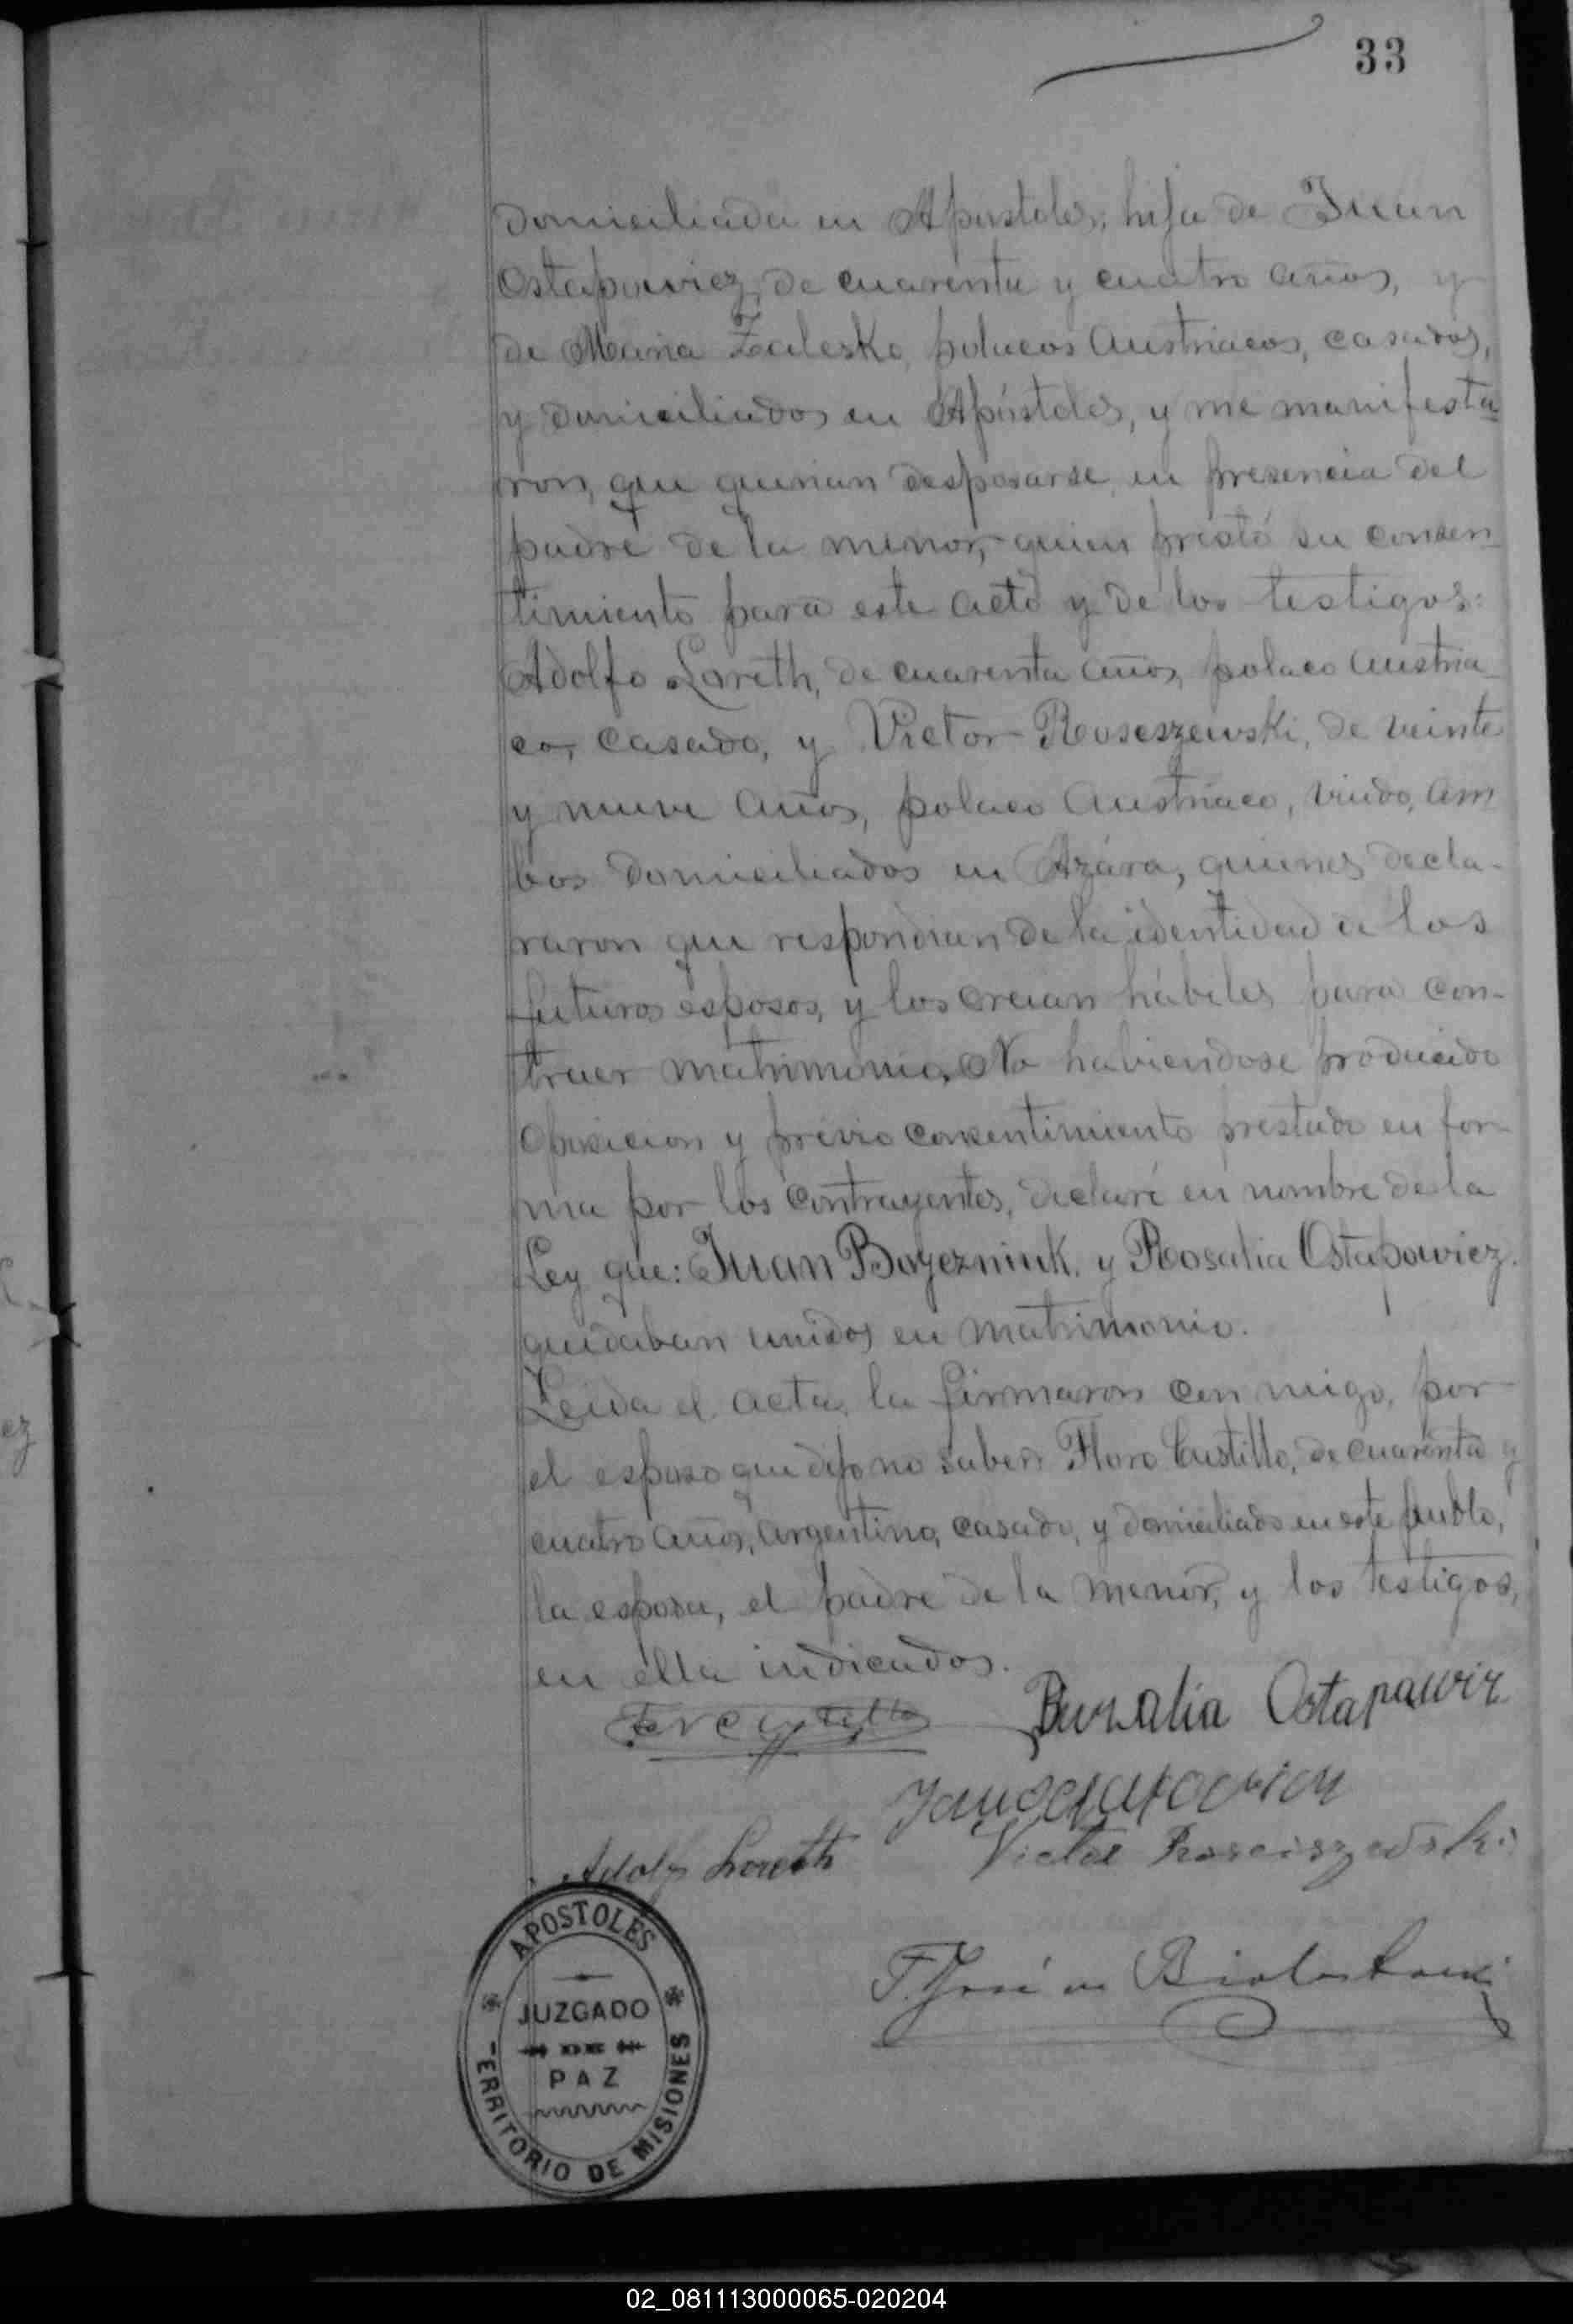 33
domiciliada en Apóstoles; hija de Juan
Ostapowiez, de cuarenta y cuatro años, y
de Maria Zalesko, polacos austriacos, casados,
y domiciliados en Apóstoles, y me manifesta
ron, que querian desposarse, en presencia del
padre de la menor, quien prestó su consen
timiento para este acto y de los testigos:
Adolfo Loreth, de cuarenta años, polaco austria
co, casado, y Victor Roseszewski, de veinte
y nueve años, polaco austriaco, viudo, am
bos domiciliados en Azára, quienes decla-
raron que respondian de la identidad de los
futuros esposos, y los creian hábiles para con-
traer matrimonio. No habiendose producido
oposicion y prévio consentimiento prestado en for-
ma por los contrayentes, declaré en nombre de la
Ley que: Juan Boyezniuk y Rosalia Ostapowiez.
quedaban unidos en matrimonio.
Leida el acta, la firmaron con migo, por
el esposo que dijo no saber Floro Castillo, de cuarenta y
cuatro años, argentino, casado, y domiciliado en este pueblo,
la esposa, el padre de la menor, y los testigos,
en ella indicados.
Ruzalia Ostapawiz
Adolf Loreth
Victor Rosciszewski
APOSTOLES
JUZGADO
DE
PAZ
TERRITORIO DE MISIONES
02_081113000065-020204